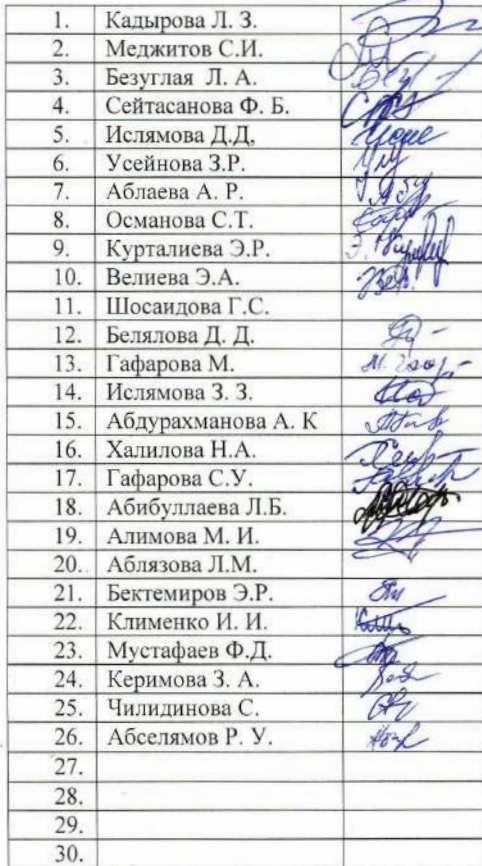 1. Кадырова Л. З.
2. Меджитов С.И.
3. Безуглая Л. А.
4. Сейтасанова Ф. Б.
5. Ислямова Д.Д,
6. Усейнова З.Р.
7. Аблаева А. Р.
8. Османова С.Т.
9. Курталиева Э.Р.
10. Велиева Э.А.
11. Шосаидова Г.С.
12. Белялова Д. Д.
13. Гафарова М.
14. Ислямова З. З.
15. Абдурахманова А. К
16. Халилова Н.А.
17. Гафарова С.У.
18. Абибуллаева Л.Б.
19. Алимова М. И.
20. Аблязова Л.М.
21. Бектемиров Э.Р.
22. Клименко И. И.
23. Мустафаев Ф.Д.
24. Керимова З. А.
25. Чилидинова С.
26. Абселямов Р. У.
27.
28.
29.
30.